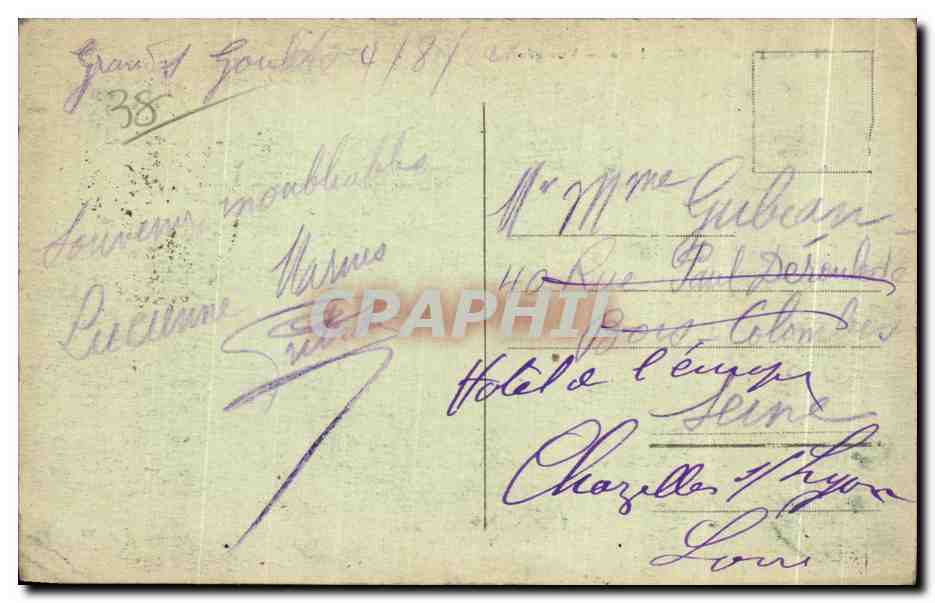 Grands Goulets 4/8/
38
Souvenir inoubliable
Lucienne Marius
Mr Mme Gubian
40 Rue Paul Déroulède
Bois-Colombes
Hotel de l'europe
Seine
Chazelles s/ Lyon
Loire
CPARHIL